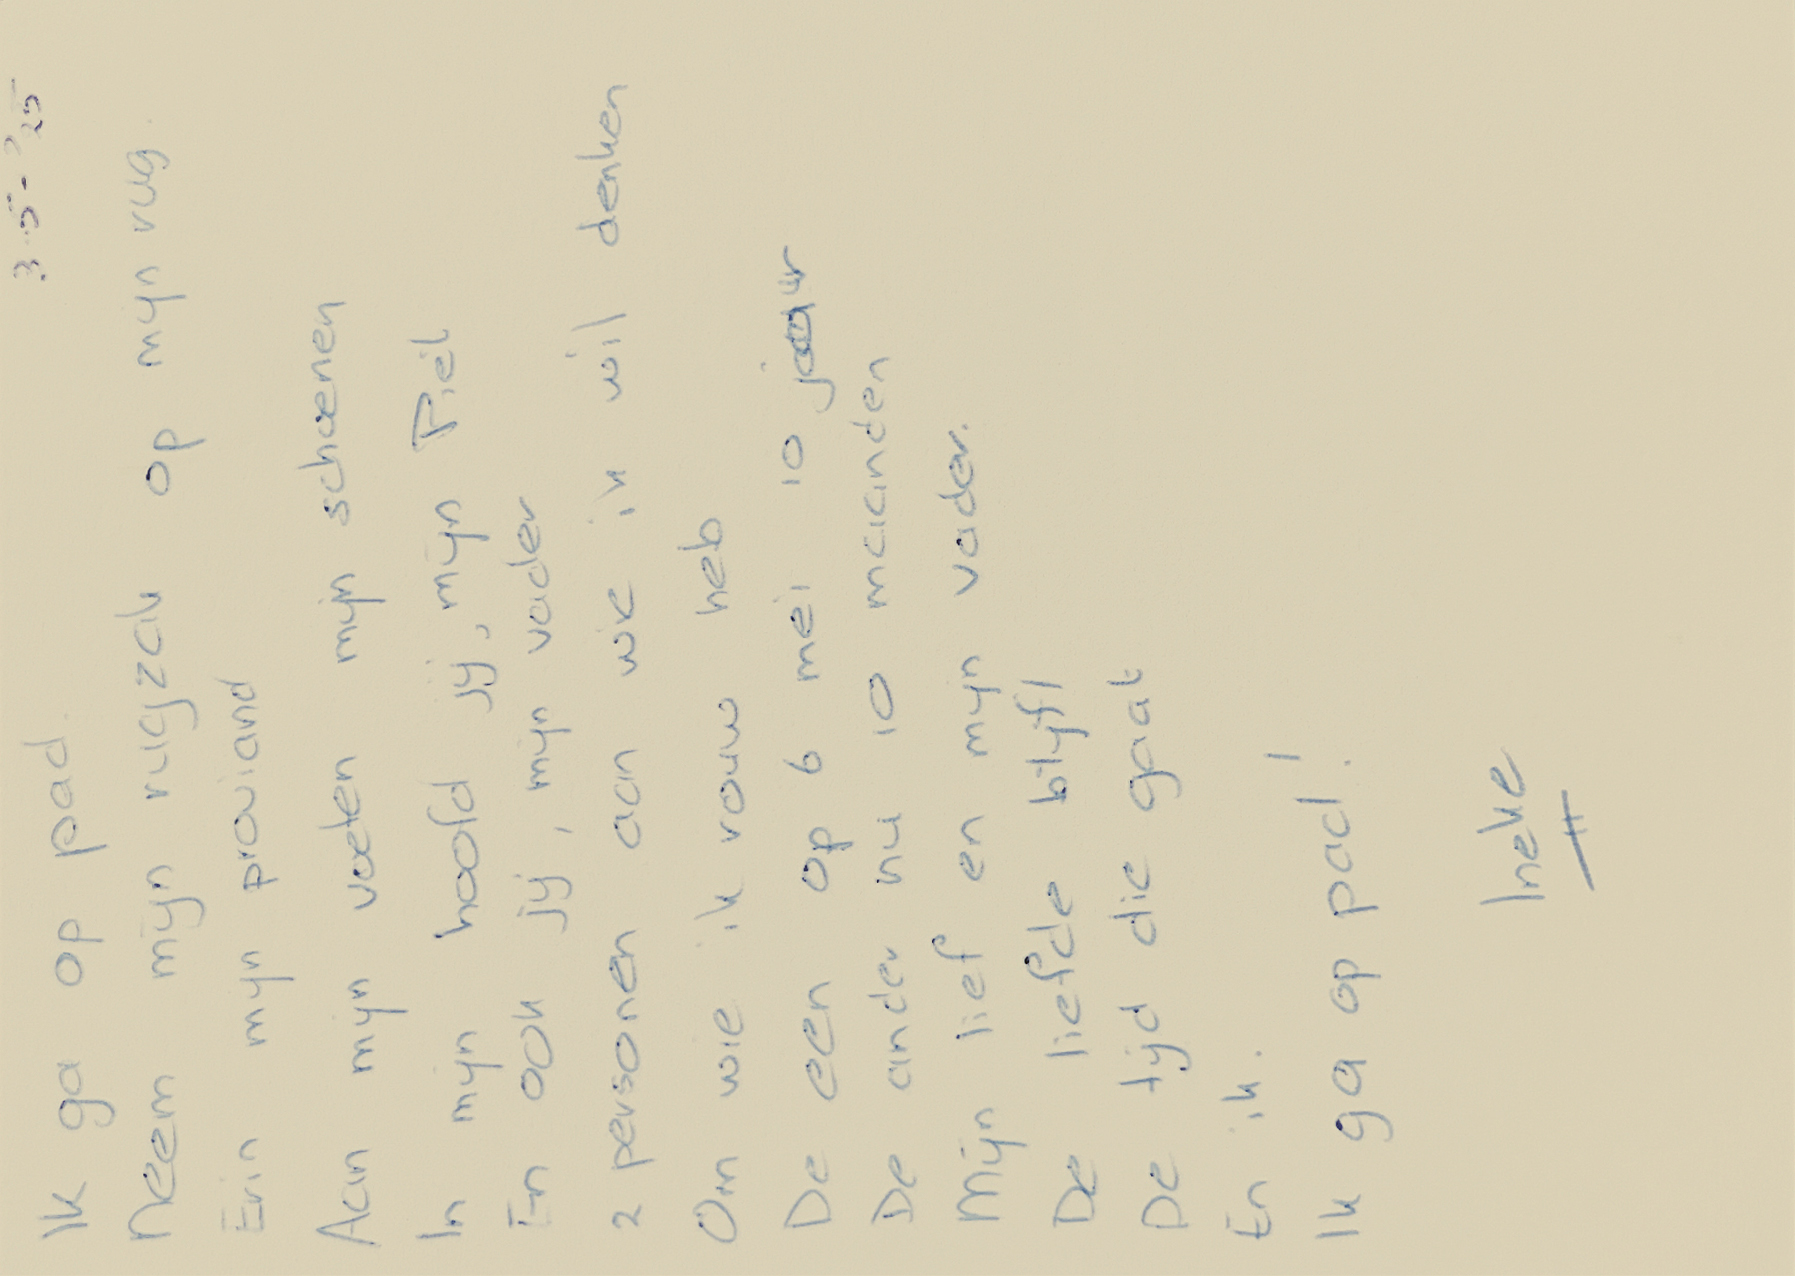 3-5-'25
Ik ga op pad.
Neem mijn rugzak op mijn rug.
Erin mijn proviand
Aan mijn voeten mijn schoenen
In mijn hoofd jij, mijn Piet
En ook jij, mijn vader
2 personen aan wie ik wil denken
Om wie ik rouw heb
De een op 6 mei 10 jaar
De ander nu 10 maanden
Mijn lief en mijn vader.
De liefde blijft
De tijd die gaat
En ik.
Ik ga op pad!
Ineke